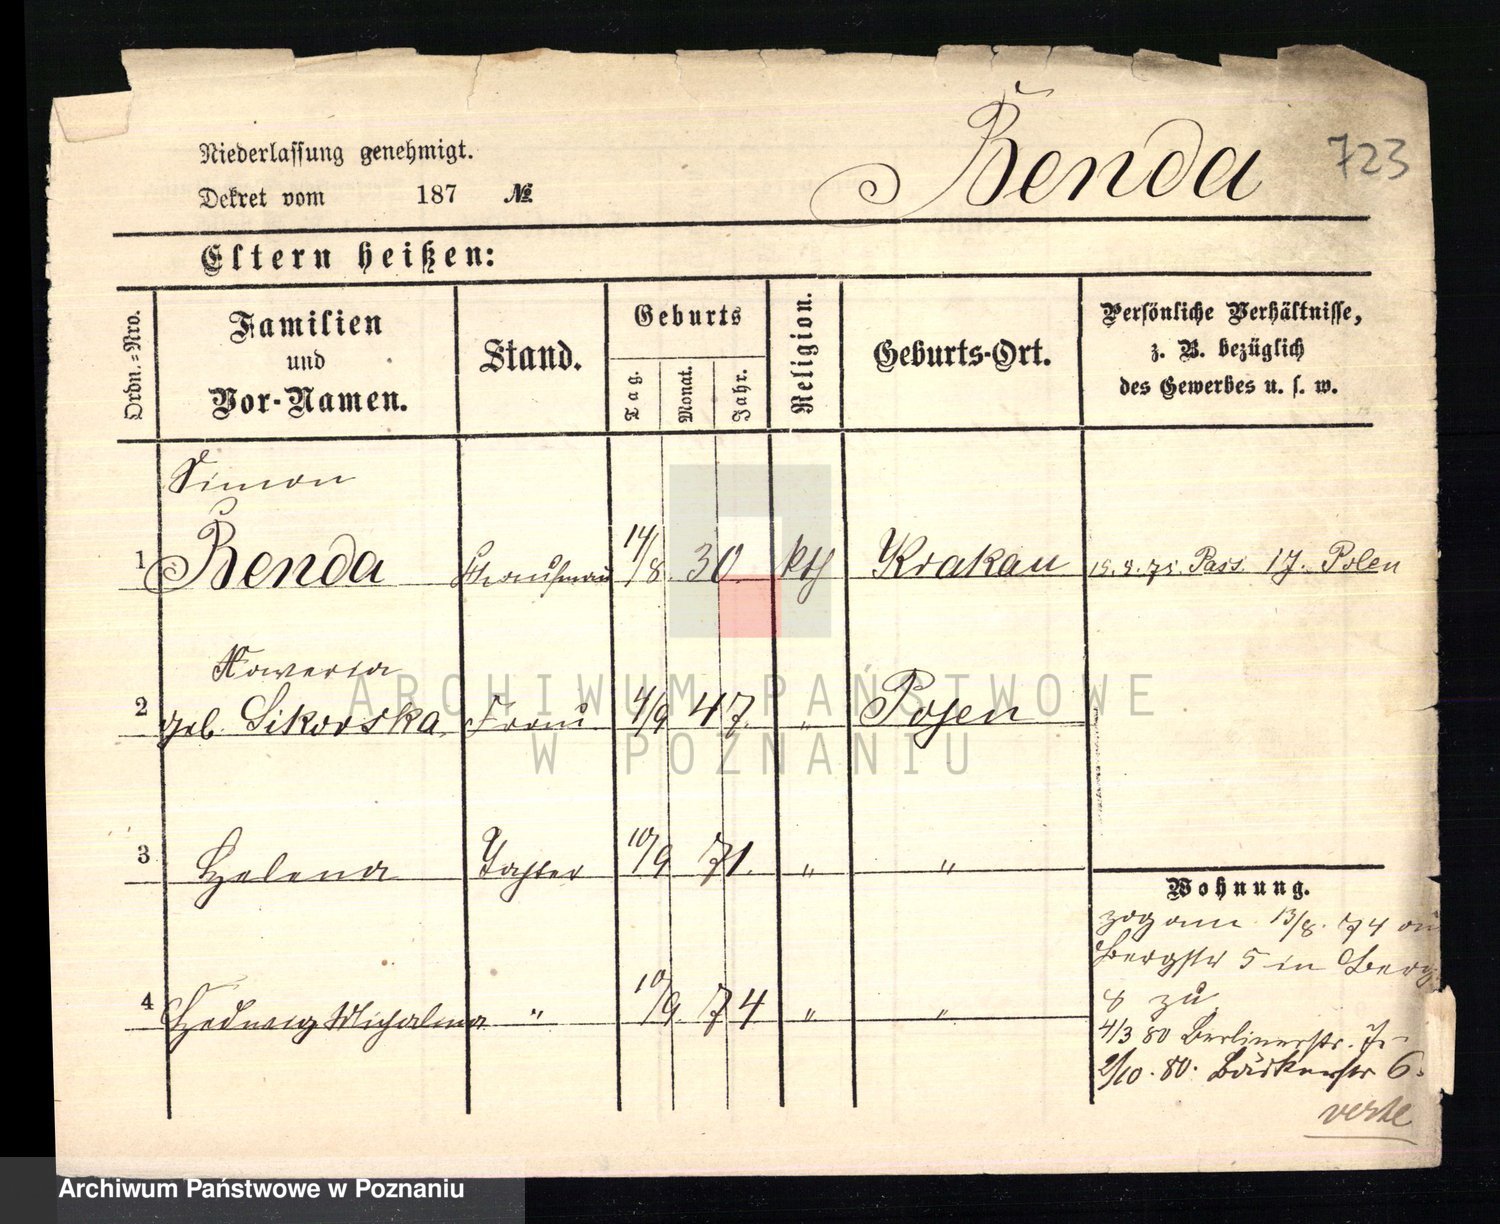 Niederlassung genehmigt.
Dekret vom 187 №
Benda 723
Eltern heißen:
Ordn.-Nro.
Familien
und
Vor-Namen.
Stand.
Geburts
Tag.
Monat.
Jahr.
Religion.
Geburts-Ort.
Persönliche Verhältnisse,
z. B. bezüglich
des Gewerbes u. s. w.
Simon
1 Benda Kaufmann 14/8. 30. kth Krakau 15.9.71. Pass. 17. Polen
2 geb. Sikorska Frau 4/9 47. " Posen
3 Helena Tochter 10/9 71. " "
4 Hedwig Michalina " 10/9. 74 " "
Wohnung.
zog am 13/8. 74 von
Bergstr 5 in Berg
8 zu
4/3 80 Berlinerstr. 7.
2/10. 80. Bäckerstr 6.
verte
ARCHIWUM PAŃSTWOWE
W POZNANIU
Archiwum Państwowe w Poznaniu